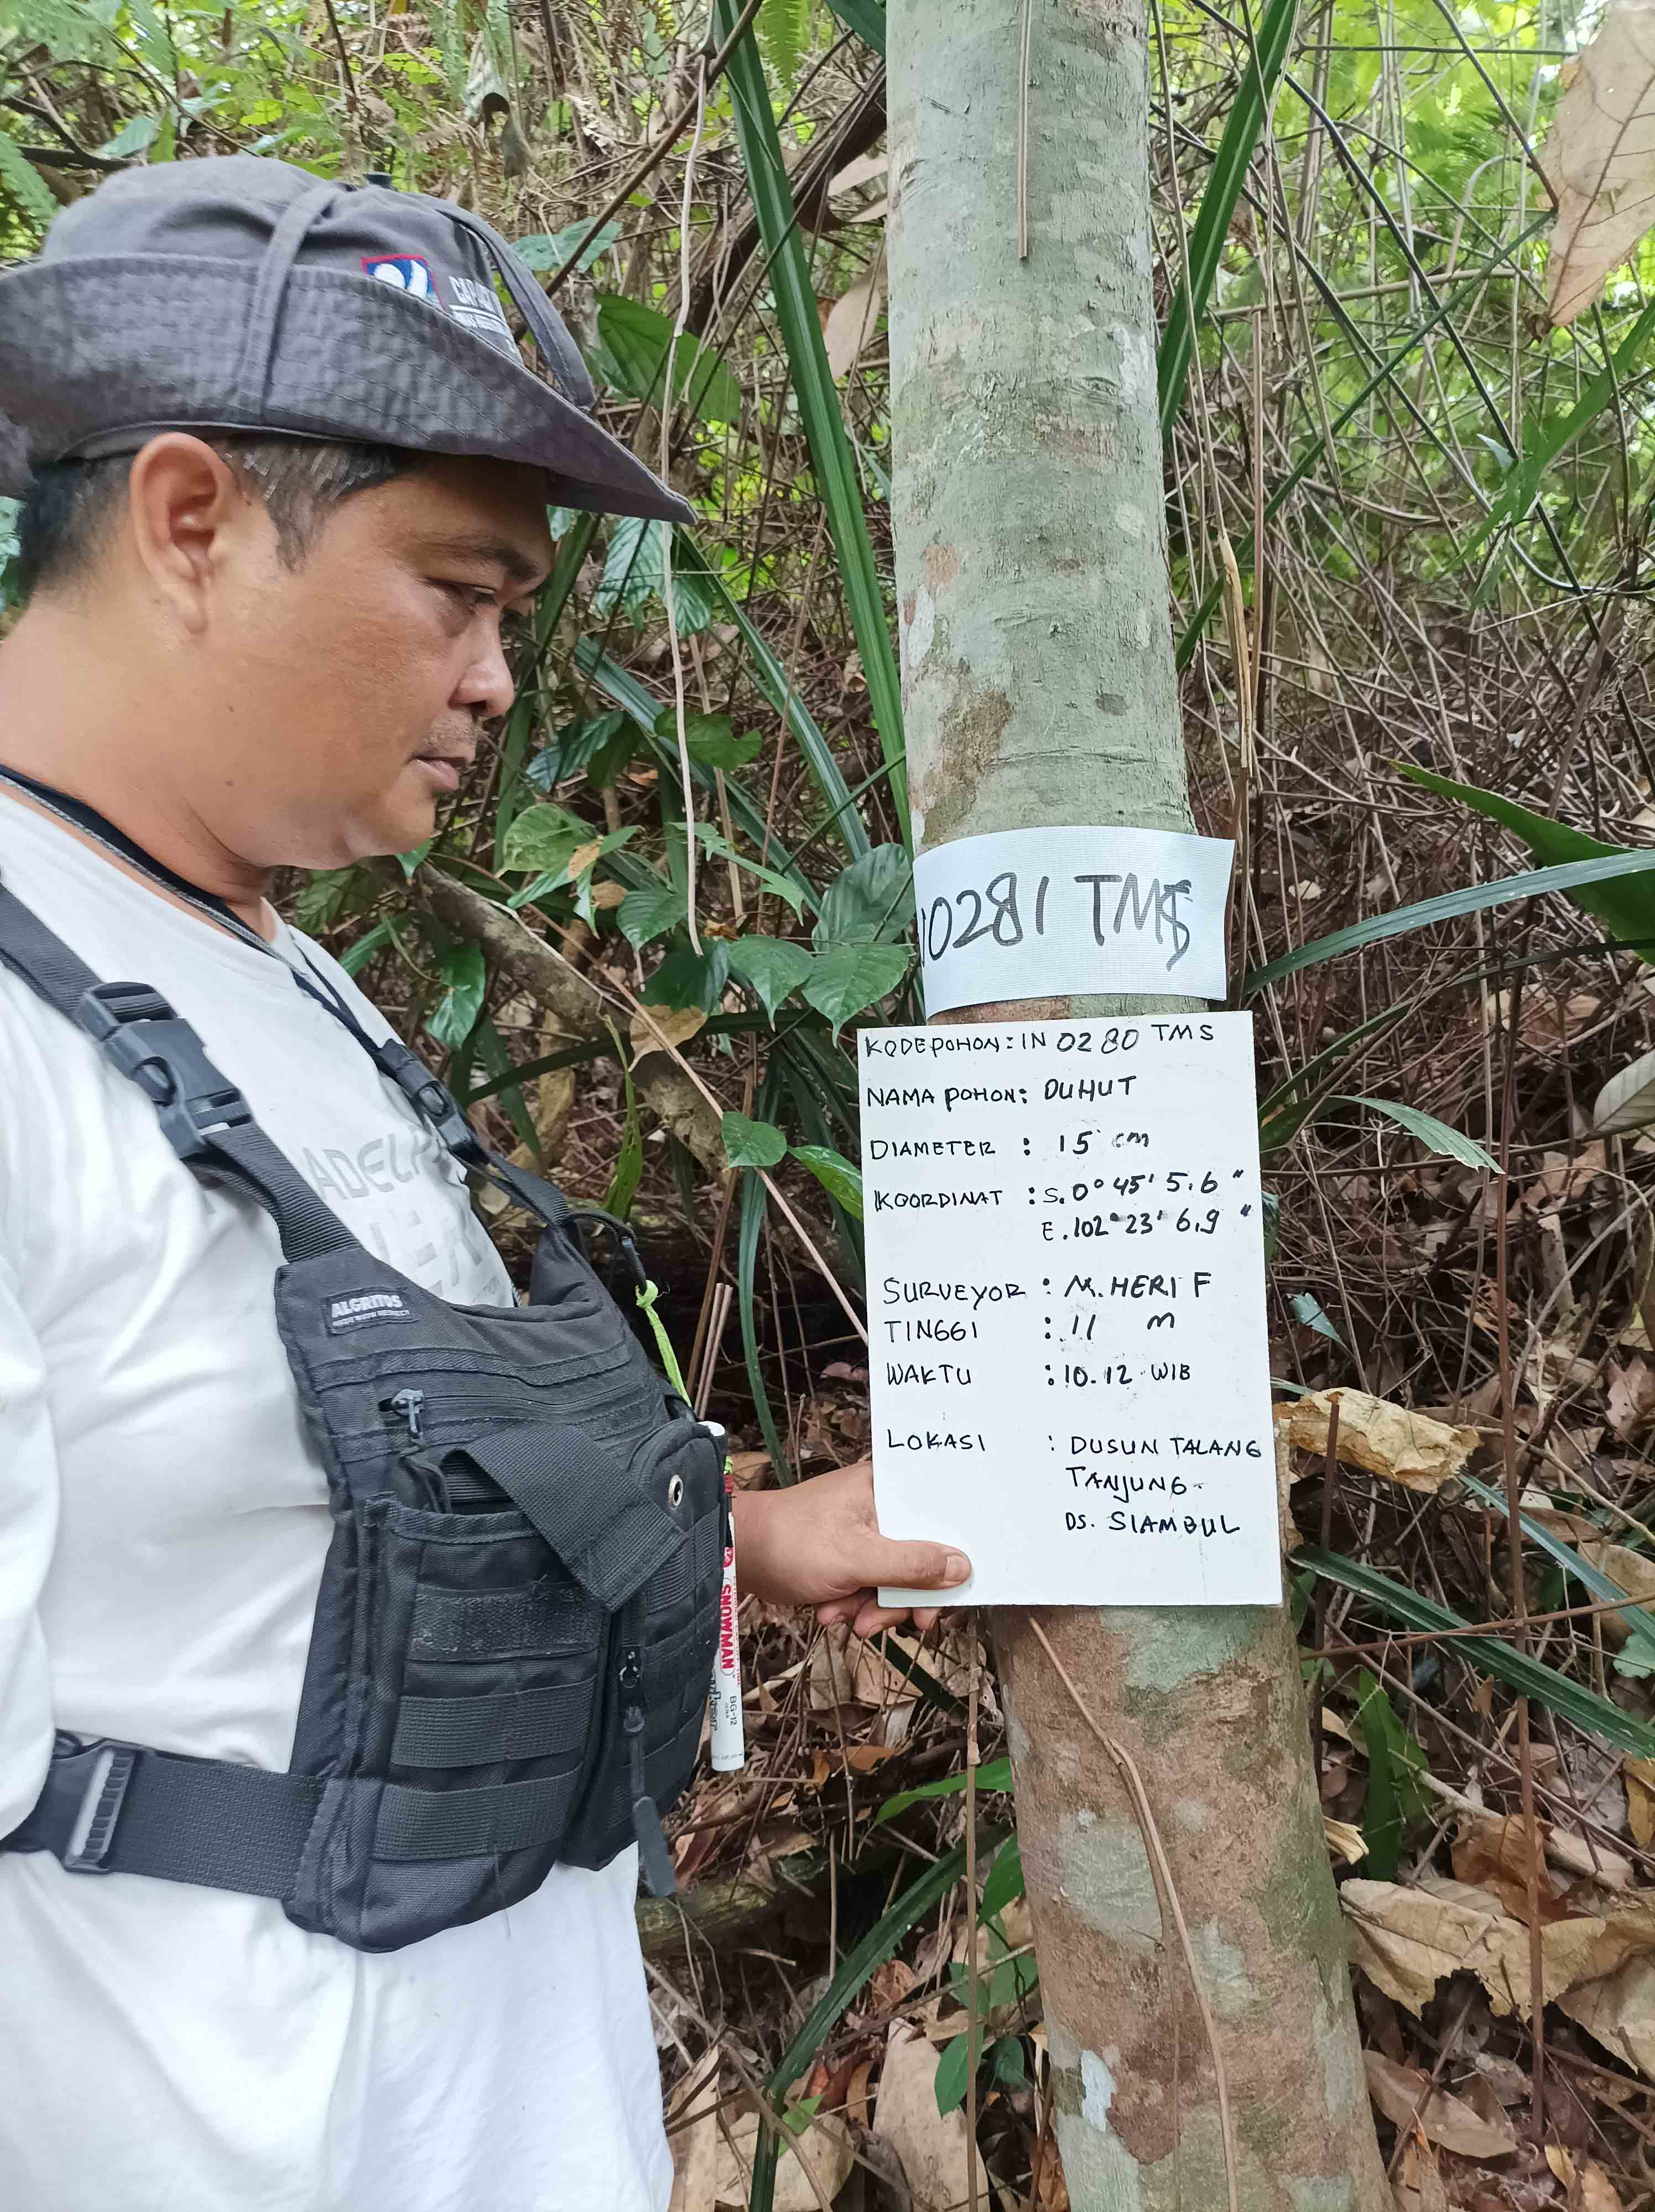 10281 TMS
KODE POHON : IN 0280 TMS
NAMA POHON : DUHUT
DIAMETER : 15 cm
KOORDINAT : S. 0° 45' 5.6 "
E. 102° 23' 6,9 "
SURVEYOR : M. HERI F
TINGGI : 11 m
WAKTU : 10.12 WIB
LOKASI : DUSUN TALANG
TANJUNG
DS. SIAMBUL
ALGRITOS
SNOWMAN
BG-12